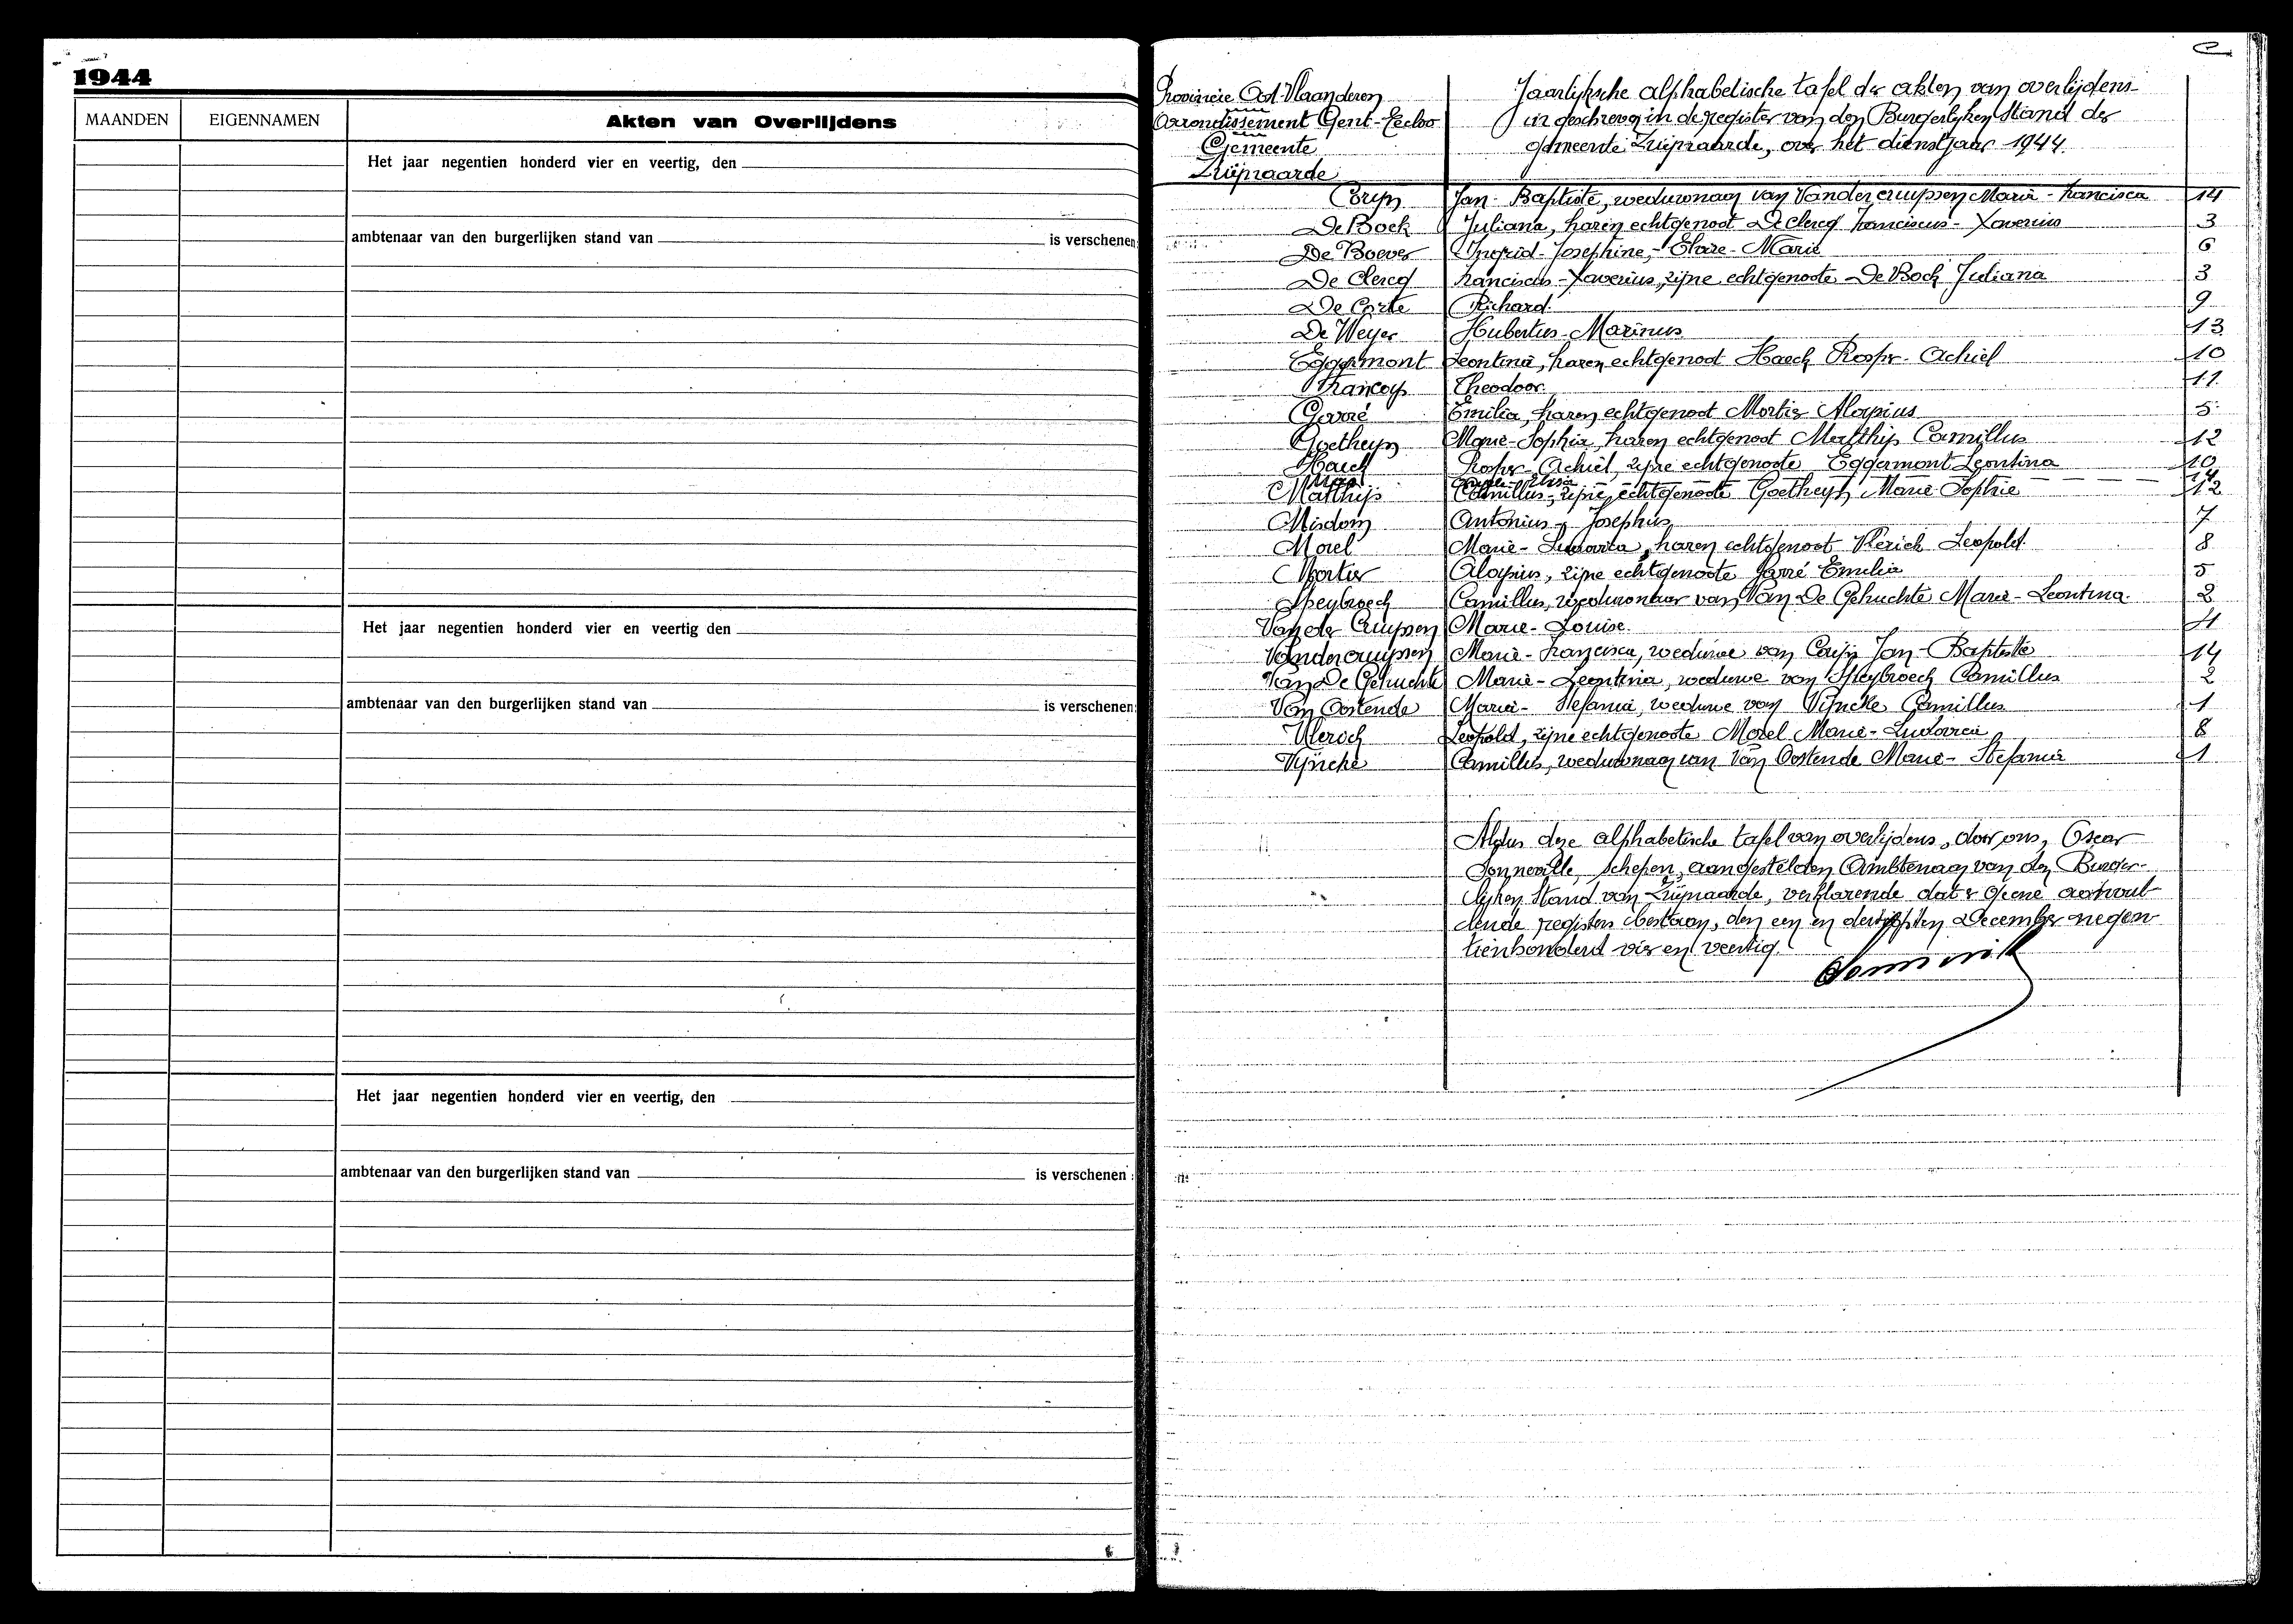 1944
MAANDEN EIGENNAMEN Akten van Overlijdens
Het jaar negentien honderd vier en veertig, den
ambtenaar van den burgerlijken stand van is verschenen
Het jaar negentien honderd vier en veertig den
ambtenaar van den burgerlijken stand van is verschenen
Het jaar negentien honderd vier en veertig, den
ambtenaar van den burgerlijken stand van is verschenen :
Provincie Oost-Vlaanderen
Arrondissement Gent-Eecloo
Gemeente
Zwijnaarde
Jaarlyksche alphabetische tafel der akten van overlijdens
in geschreven in de register van den Burgerlyken Stand der
gemeente Zwijnaarde, over het dienstjaar 1944.
Jan-Baptiste, weduwnaar van Vandercruyssen Marie-Francisca 14
De Bock Juliana, haren echtgenoot De Clercq Franciscus-Xaverius 3
De Boever Ingrid-Josephine, -Marie 6
De Clercq Franciscus-Xaverius, zijne echtgenoote De Bock Juliana 3
De Corte Richard. 9
De Weyer Hubertus-Marinus 13
Eggermont Leontina, haren echtgenoot Haeck Achiel 10
Francoys Theodoor. 11
Garré Emilia, haren echtgenoot Mortier Aloysius 5
Goetheyn Marie-Sophia, haren echtgenoot Matthijs Camillus 12
Haeck Achiel, zijne echtgenoote Eggermont Leontina 10
Matthijs Camillus, zijne echtgenoote Goetheyn Marie-Sophie 12
Misdom Antonius-Josephus 7
Morel Marie-Ludovica, haren echtgenoot Vlerick Leopold. 8
Mortier Aloysius, zijne echtgenoote Garré Emilia 5
Speybroeck Camillus, weduwnaar van Van De Gehuchte Marie-Leontina. 2
Van der Cruyssen Marie-Louise. 4
Vandercruyssen Marie-Francisca, weduwe van Jan-Baptiste 14
Van De Gehuchte Marie-Leontina, weduwe van Speybroeck Camillus 2
Van Oostende Marie-Stefania, weduwe van Vyncke Camillus 1
Vlerick Leopold, zijne echtgenoote Morel Marie-Ludovica 8
Vyncke Camillus, weduwnaar van Van Oostende Marie-Stefania 1
Aldus deze alphabetische tafel van overlijdens, door ons, Oscar
Schepen, aangestelden Ambtenaar van den Burger-
lijken Stand van Zwijnaarde, verklarende dat er geene aanvul-
lende registers bestaan, den een en dertigsten December negen
tienhonderd vier en veertig.